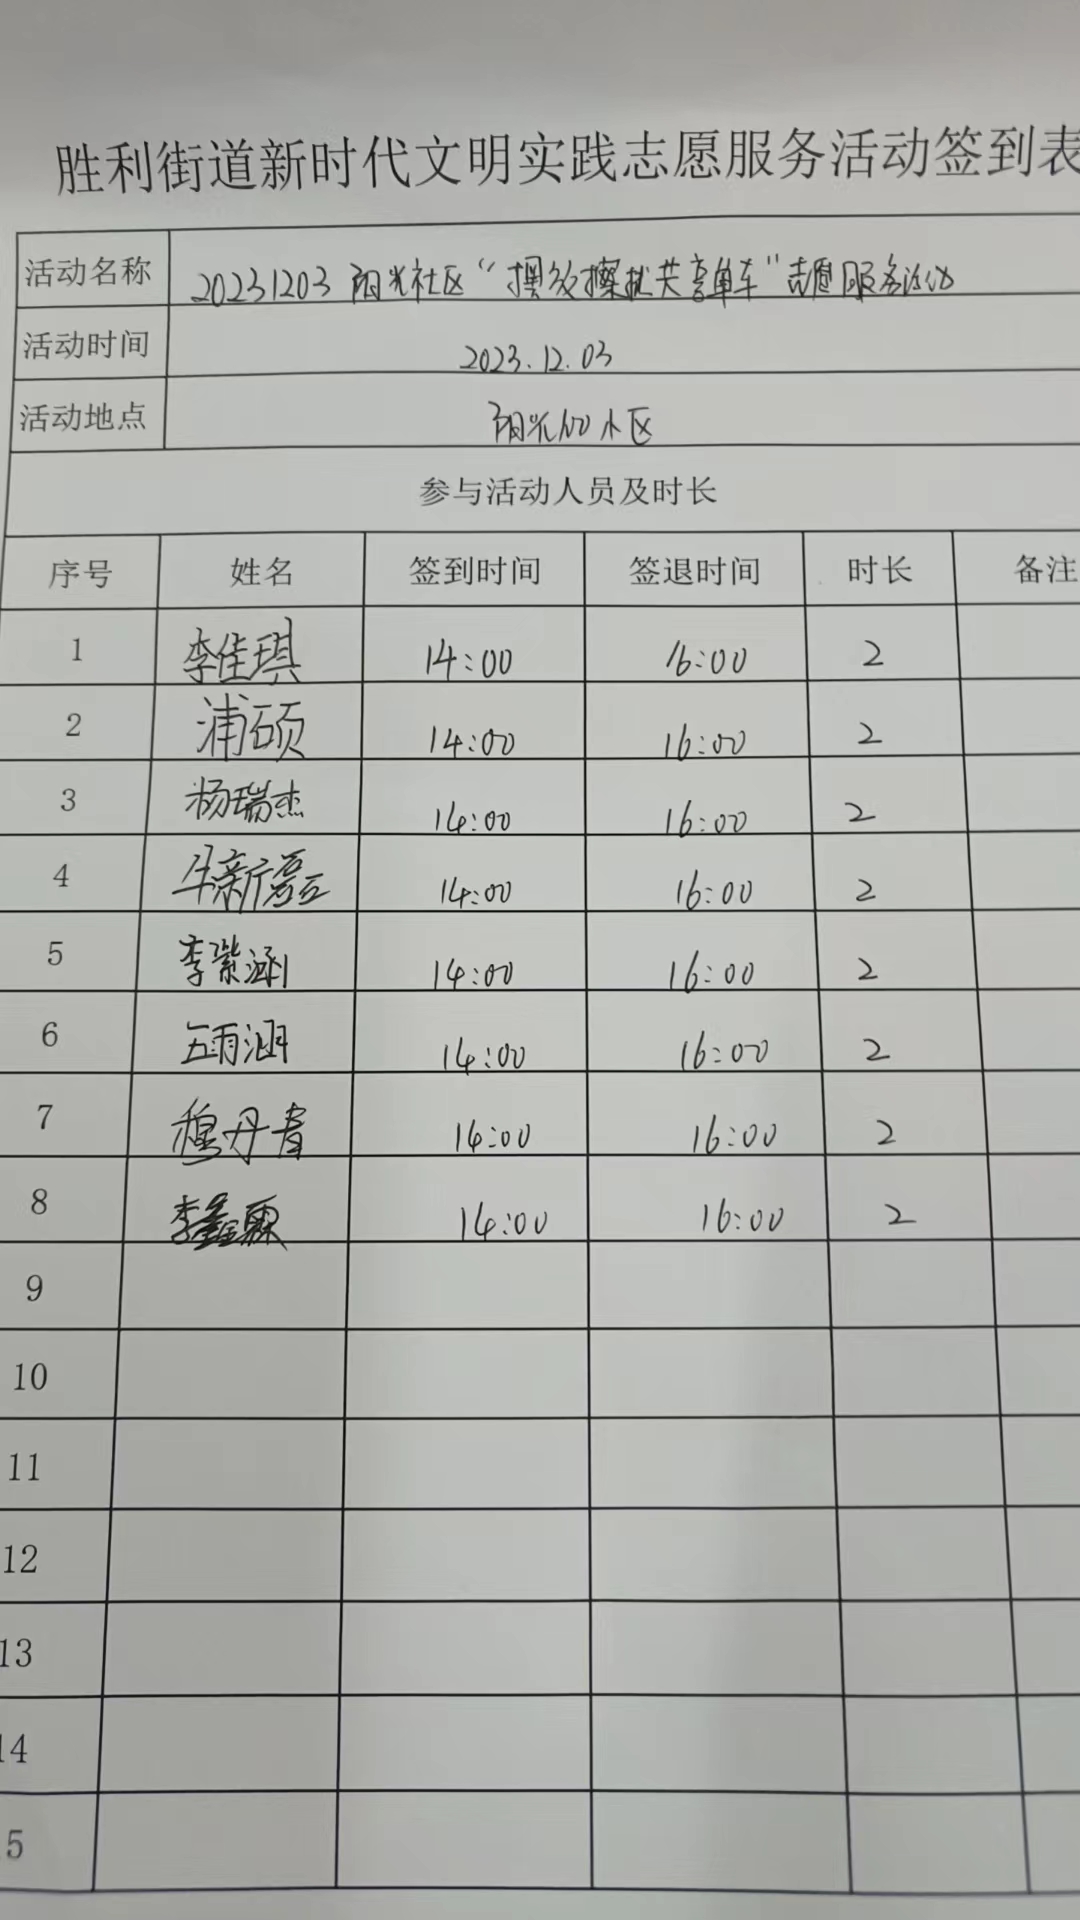 胜利街道新时代文明实践志愿服务活动签到表
活动名称 20231203 阳光社区“摆放擦拭共享单车”志愿服务活动
活动时间 2023.12.03
活动地点 阳光100小区
参与活动人员及时长
序号 姓名 签到时间 签退时间 时长 备注
1 李佳琪 14:00 16:00 2
2 浦硕 14:00 16:00 2
3 杨瑞杰 14:00 16:00 2
4 牛新磊 14:00 16:00 2
5 李紫涵 14:00 16:00 2
6 王雨涵 14:00 16:00 2
7 穆丹青 14:00 16:00 2
8 李鑫 14:00 16:00 2
9
10
11
12
13
14
15